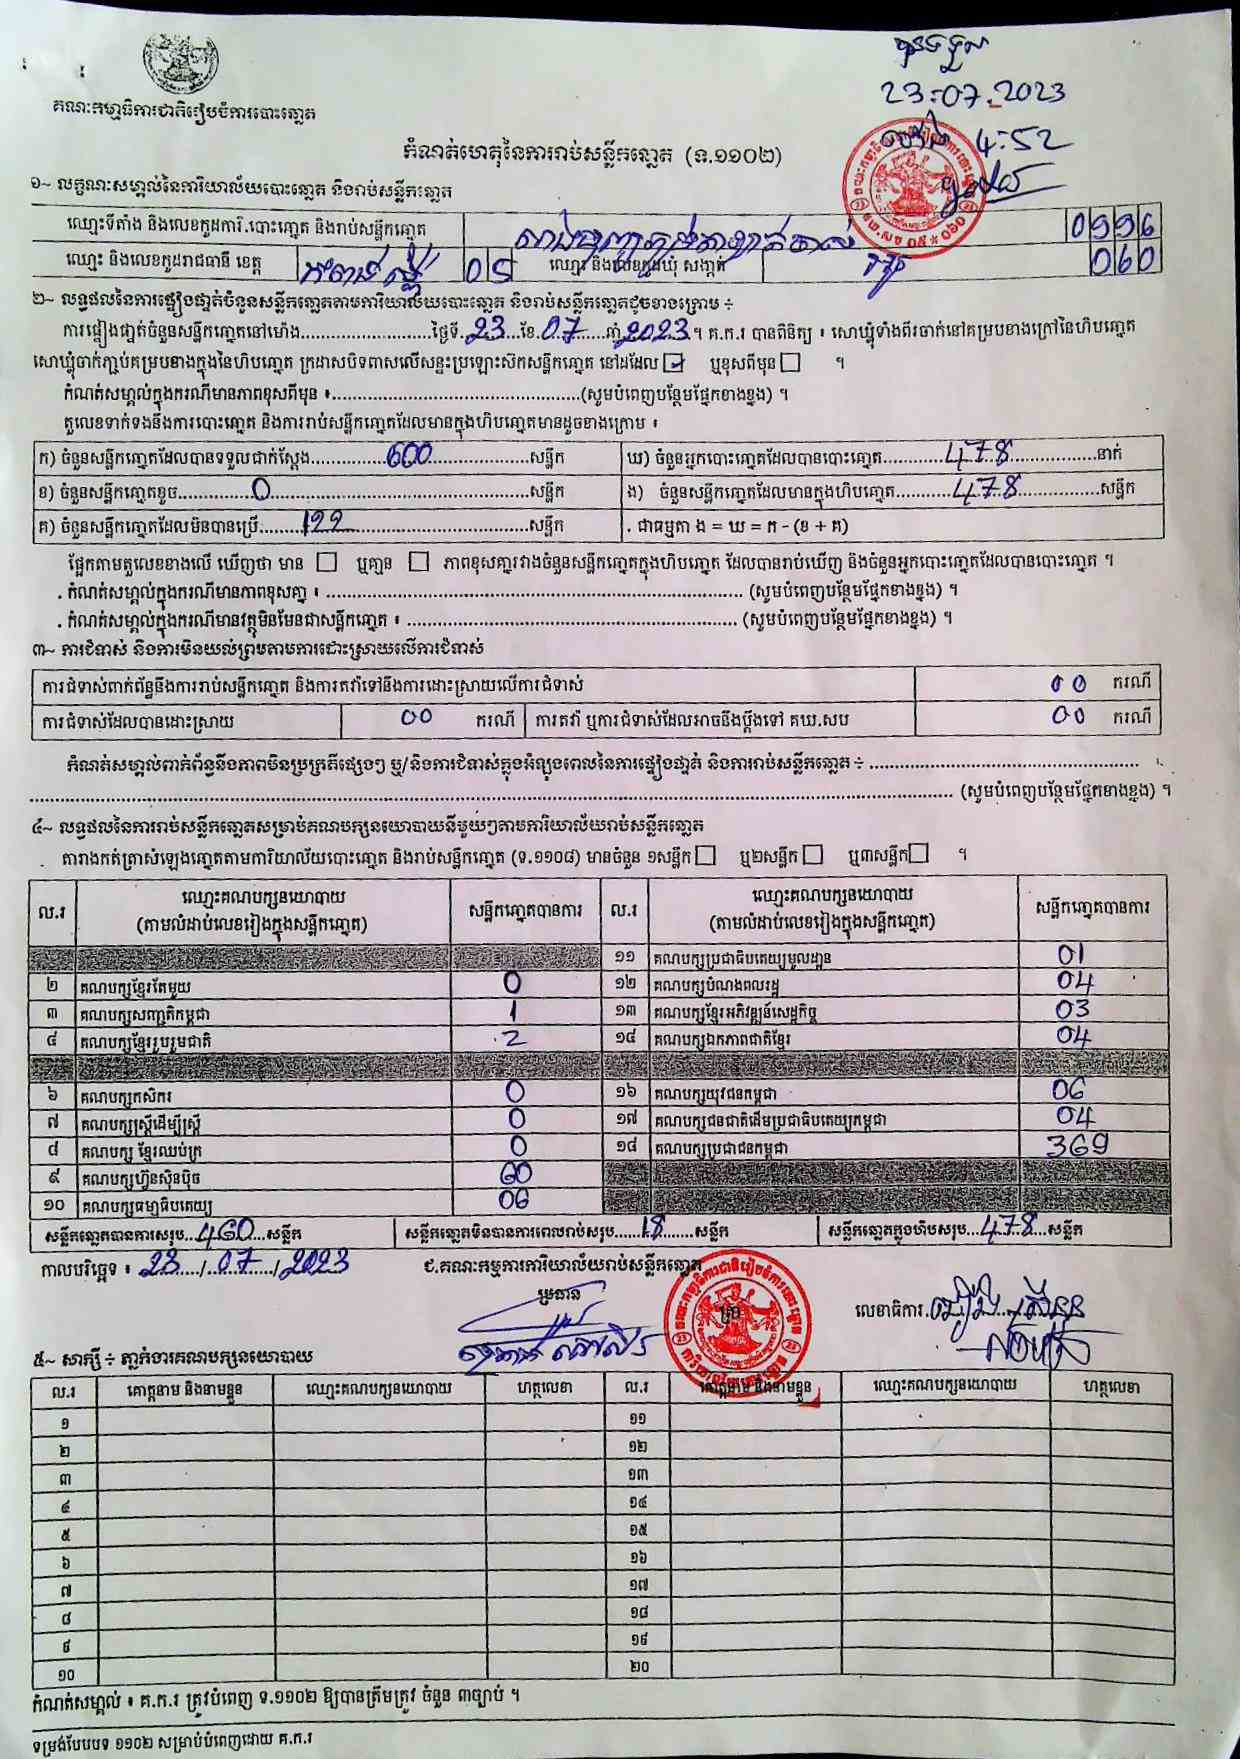 បានទទួល
23-07-2023
ម៉ោង 4:52
គណៈកម្មាធិការជាតិរៀបចំការបោះឆ្នោត
កំណត់ហេតុនៃការរាប់សន្លឹកឆ្នោត (ទ.១១០២)
១~ លក្ខណៈសម្គាល់នៃការិយាល័យបោះឆ្នោត និងរាប់សន្លឹកឆ្នោត
ឈ្មោះទីតាំង និងលេខកូដការិ.បោះឆ្នោត និងរាប់សន្លឹកឆ្នោត 0996
ឈ្មោះ និងលេខកូដរាជធានី ខេត្ត កំពង់ស្ពឺ 05 ឈ្មោះ និងលេខកូដឃុំ សង្កាត់ 060
២~ លទ្ធផលនៃការផ្ទៀងផ្ទាត់ចំនួនសន្លឹកឆ្នោតតាមការិយាល័យបោះឆ្នោត និងរាប់សន្លឹកឆ្នោតដូចខាងក្រោម ÷
ការផ្ទៀងផ្ទាត់ចំនួនសន្លឹកឆ្នោតនៅម៉ោង..........ថ្ងៃទី 23 ខែ 07 ឆ្នាំ 2023 ។ គ.ក.រ បានពិនិត្យ ៖ សោឃ្មុំទាំងពីរចាក់នៅគម្របខាងក្រៅនៃហិបឆ្នោត
សោឃ្មុំចាក់ភ្ជាប់គម្របខាងក្នុងនៃហិបឆ្នោត ក្រដាសបិទពាសលើសន្ទះប្រឡោះស៊កសន្លឹកឆ្នោត នៅដដែល ☑ ឬខុសពីមុន ☐ ។
កំណត់សម្គាល់ក្នុងករណីមានភាពខុសពីមុន ៖..........(សូមបំពេញបន្ថែមផ្នែកខាងខ្នង) ។
តួលេខទាក់ទងនឹងការបោះឆ្នោត និងការរាប់សន្លឹកឆ្នោតដែលមានក្នុងហិបឆ្នោតមានដូចខាងក្រោម ៖
ក) ចំនួនសន្លឹកឆ្នោតដែលបានទទួលជាក់ស្តែង 600 សន្លឹក ឃ) ចំនួនអ្នកបោះឆ្នោតដែលបានបោះឆ្នោត 478 នាក់
ខ) ចំនួនសន្លឹកឆ្នោតខូច 0 សន្លឹក ង) ចំនួនសន្លឹកឆ្នោតដែលមានក្នុងហិបឆ្នោត 478 សន្លឹក
គ) ចំនួនសន្លឹកឆ្នោតដែលមិនបានប្រើ 122 សន្លឹក . ជាធម្មតា ង = ឃ = ក - (ខ + គ)
ផ្អែកតាមតួលេខខាងលើ ឃើញថា មាន ☐ ឬគ្មាន ☐ ភាពខុសគ្នារវាងចំនួនសន្លឹកឆ្នោតក្នុងហិបឆ្នោត ដែលបានរាប់ឃើញ និងចំនួនអ្នកបោះឆ្នោតដែលបានបោះឆ្នោត ។
. កំណត់សម្គាល់ក្នុងករណីមានភាពខុសគ្នា ៖ .......... (សូមបំពេញបន្ថែមផ្នែកខាងខ្នង) ។
. កំណត់សម្គាល់ក្នុងករណីមានវត្ថុមិនមែនជាសន្លឹកឆ្នោត ៖ .......... (សូមបំពេញបន្ថែមផ្នែកខាងខ្នង) ។
៣~ ការជំទាស់ និងការមិនយល់ព្រមតាមការដោះស្រាយលើការជំទាស់
ការជំទាស់ពាក់ព័ន្ធនឹងការរាប់សន្លឹកឆ្នោត និងការតវ៉ាទៅនឹងការដោះស្រាយលើការជំទាស់ 00 ករណី
ការជំទាស់ដែលបានដោះស្រាយ 00 ករណី ការតវ៉ា ឬការជំទាស់ដែលអាចនឹងប្តឹងទៅ គឃ.សប 00 ករណី
កំណត់សម្គាល់ពាក់ព័ន្ធនឹងភាពមិនប្រក្រតីផ្សេងៗ ឬ/និងការជំទាស់ក្នុងអំឡុងពេលនៃការផ្ទៀងផ្ទាត់ និងការរាប់សន្លឹកឆ្នោត ÷ ..........
.......... (សូមបំពេញបន្ថែមផ្នែកខាងខ្នង) ។
៤~ លទ្ធផលនៃការរាប់សន្លឹកឆ្នោតសម្រាប់គណបក្សនយោបាយនីមួយៗតាមការិយាល័យរាប់សន្លឹកឆ្នោត
តារាងកត់ត្រាសំឡេងឆ្នោតតាមការិយាល័យបោះឆ្នោត និងរាប់សន្លឹកឆ្នោត (ទ.១១០៨) មានចំនួន ១សន្លឹក ☐ ឬ២សន្លឹក ☐ ឬ៣សន្លឹក ☐ ។
ល.រ ឈ្មោះគណបក្សនយោបាយ (តាមលំដាប់លេខរៀងក្នុងសន្លឹកឆ្នោត) សន្លឹកឆ្នោតបានការ ល.រ ឈ្មោះគណបក្សនយោបាយ (តាមលំដាប់លេខរៀងក្នុងសន្លឹកឆ្នោត) សន្លឹកឆ្នោតបានការ
១១ គណបក្សប្រជាធិបតេយ្យមូលដ្ឋាន 01
២ គណបក្សខ្មែរតែមួយ 0 ១២ គណបក្សបំណងពលរដ្ឋ 04
៣ គណបក្សសញ្ជាតិកម្ពុជា 1 ១៣ គណបក្សខ្មែរអភិវឌ្ឍន៍សេដ្ឋកិច្ច 03
៤ គណបក្សខ្មែររួបរួមជាតិ 2 ១៤ គណបក្សឯកភាពជាតិខ្មែរ 04
៦ គណបក្សកសិករ 0 ១៦ គណបក្សយុវជនកម្ពុជា 06
៧ គណបក្សស្ត្រីដើម្បីស្ត្រី 0 ១៧ គណបក្សជនជាតិដើមប្រជាធិបតេយ្យកម្ពុជា 04
៨ គណបក្ស ខ្មែរឈប់ក្រ 0 ១៨ គណបក្សប្រជាជនកម្ពុជា 369
៩ គណបក្សហ៊្វុនស៊ិនប៉ិច 60
១០ គណបក្សធម្មាធិបតេយ្យ 06
សន្លឹកឆ្នោតបានការសរុប 460 សន្លឹក សន្លឹកឆ្នោតមិនបានការពេលរាប់សរុប 18 សន្លឹក សន្លឹកឆ្នោតក្នុងហិបសរុប 478 សន្លឹក
កាលបរិច្ឆេទ ៖ 23/07/2023 ជ.គណៈកម្មការការិយាល័យរាប់សន្លឹកឆ្នោត
ប្រធាន លេខាធិការ
៥~ សាក្សី ÷ ភ្នាក់ងារគណបក្សនយោបាយ
ល.រ គោត្តនាម និងនាមខ្លួន ឈ្មោះគណបក្សនយោបាយ ហត្ថលេខា ល.រ គោត្តនាម និងនាមខ្លួន ឈ្មោះគណបក្សនយោបាយ ហត្ថលេខា
១ ១១
២ ១២
៣ ១៣
៤ ១៤
៥ ១៥
៦ ១៦
៧ ១៧
៨ ១៨
៩ ១៩
១០ ២០
កំណត់សម្គាល់ ៖ គ.ក.រ ត្រូវបំពេញ ទ.១១០២ ឱ្យបានត្រឹមត្រូវ ចំនួន ៣ច្បាប់ ។
ទម្រង់បែបបទ ១១០២ សម្រាប់បំពេញដោយ គ.ក.រ